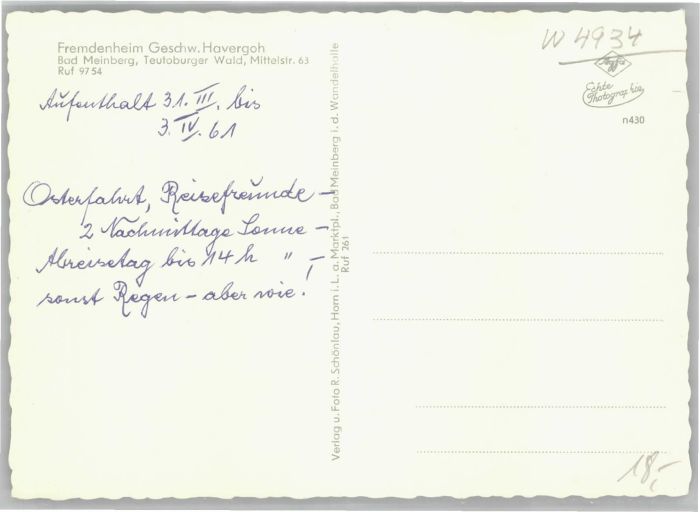 Fremdenheim Geschw. Havergoh
Bad Meinberg, Teutoburger Wald, Mittelstr. 63
Ruf 9754
Aufenthalt 31. III. bis
3. IV. 61
Osterfahrt, Reisefreunde –
2 Nachmittage Sonne –
Abreisetag bis 14 h " –
sonst Regen – aber wie!!
Verlag u. Foto R. Schönlau, Horn i. L. a. Marktpl., Bad Meinberg i. d. Wandelhalle
Ruf 261
W 4934
Agfa
Echte
Photographie
n430
18,-